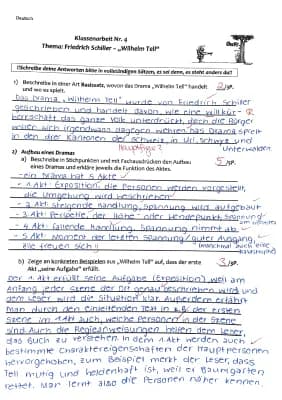 Deutsch
Klassenarbeit Nr. 4
Thema: Friedrich Schiller – „Wilhelm Tell"
!!Schreibe deine Antworten bitte in vollständigen Sätzen, es sei denn, es steht anders da!!
1) Beschreibe in einer Art Basissatz, wovon das Drama „Wilhelm Tell" handelt und wo es spielt. 2/3P.
Das Drama „Wilhelm Tell" wurde von Friedrich Schiller
geschrieben und handelt davon, wie eine willkür-
herrschaft das ganze Volk unterdrückt, doch die Bürger
wollen sich irgendwann dagegen wehren. Das Drama spielt
in den drei Kantonen der Schweiz, in Uri, Schwyz und
Hauptfigur? Unterwalden.
2) Aufbau eines Dramas
a) Beschreibe in Stichpunkten und mit Fachausdrücken den Aufbau eines Dramas und erkläre jeweils die Funktion des Aktes. 5/5P.
- ein Drama hat 5 Akte
- 1. Akt: Exposition, die Personen werden vorgestellt,
die Umgebung wird beschrieben
- 2. Akt: steigende Handlung, Spannung wird aufgebaut
- 3. Akt: Peripetie, der Höhe- oder Wendepunkt, Spannung am
- 4. Akt: fallende Handlung, Spannung nimmt ab
- 5. Akt: Moment der letzten Spannung/guter Ausgang,
alle freuen sich
b) Zeige an konkreten Beispielen aus „Wilhelm Tell" auf, dass der erste Akt „seine Aufgabe" erfüllt. 3/3P.
Der 1. Akt erfüllt seine Aufgabe (Exposition), weil am
Anfang jeder Szene der Ort genau beschrieben wird und
dem Leser wird die Situation klar. Außerdem erfährt
man durch den einleitenden Text in z.B. der ersten
Szene im 1. Akt auch, welche Personen in der Szene
sind. Auch die Regieanweisungen helfen dem Leser,
das Buch zu verstehen. In dem 1. Akt werden auch
bestimmte Charaktereigenschaften der Hauptpersonen
hervorgehoben, zum Beispiel merkt der Leser, dass
Tell mutig und heldenhaft ist, weil er Baumgarten
rettet. Man lernt also die Personen näher kennen.